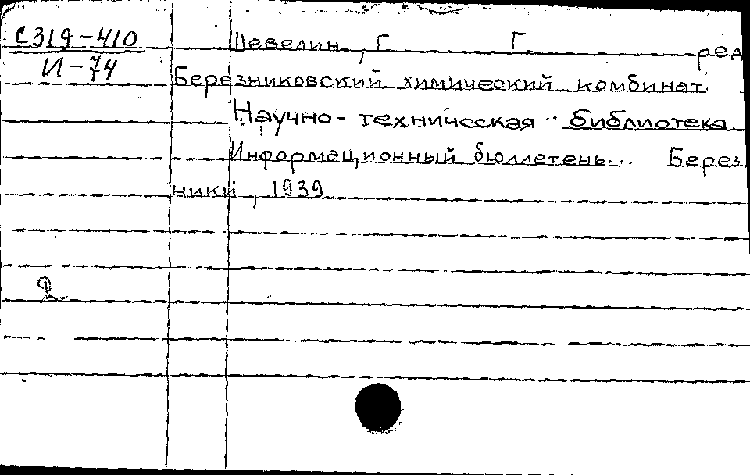 С319-410
И-74
Шевелин, Г. Г. ред
Березниковский химический комбинат.
Научно-техническая библиотека
Информационный бюллетень... Берез
ники, 1939
2